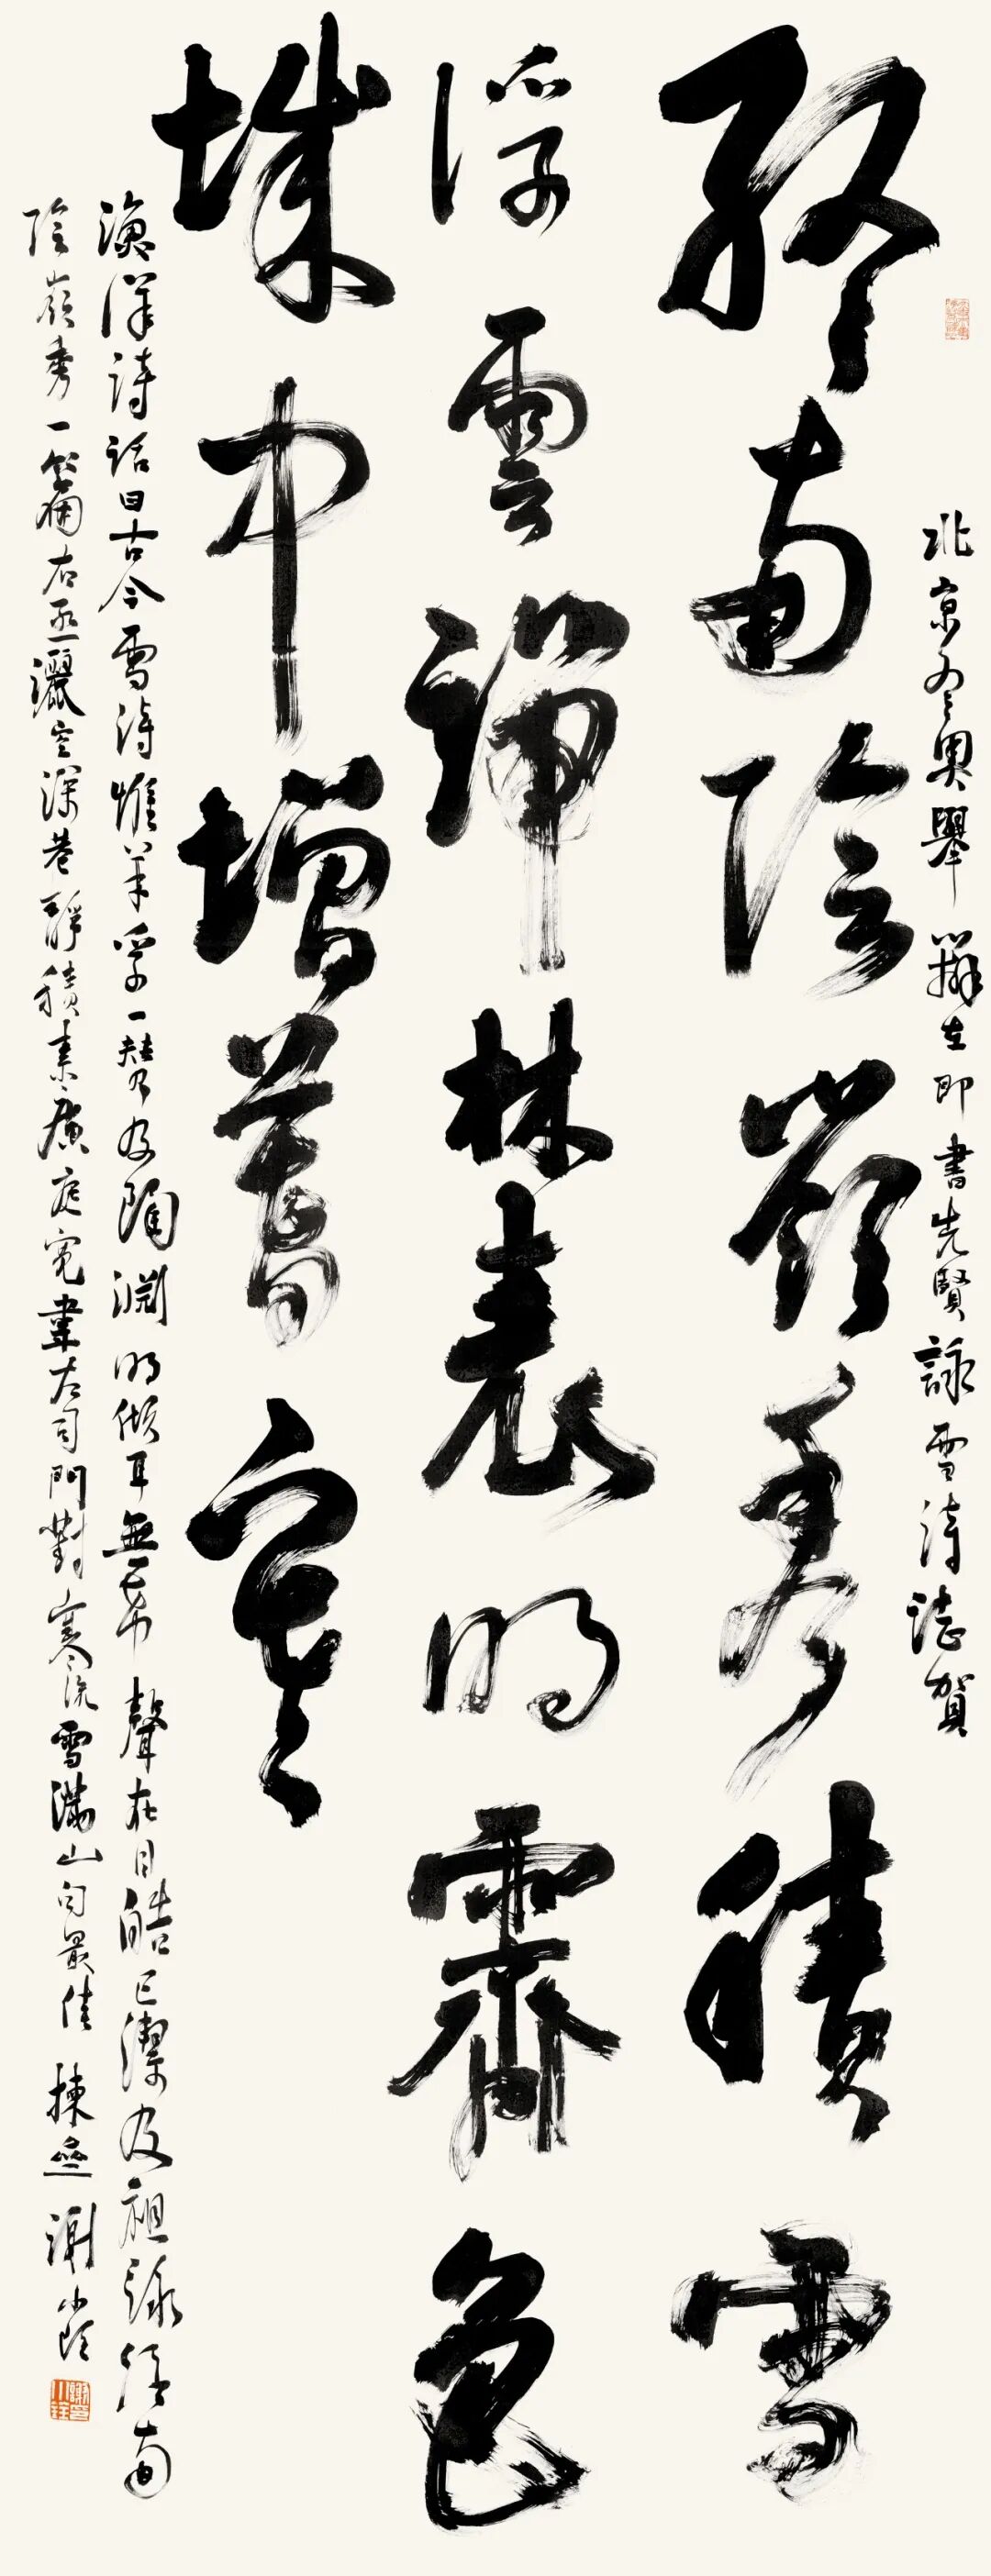 北京冬奥舉辦在即書先賢詠雪詩誌賀
終南陰嶺秀積雪
浮雲端林表明霽色
城中增暮寒
漁洋詩話曰古今雪詩惟羊孚一贊及陶淵明傾耳無希聲在目皓已潔及祖詠終南
陰嶺秀一篇右丞灑空深巷靜積素廣庭寬韋左司門對寒流雪滿山句最佳 揀巫 謝小銓